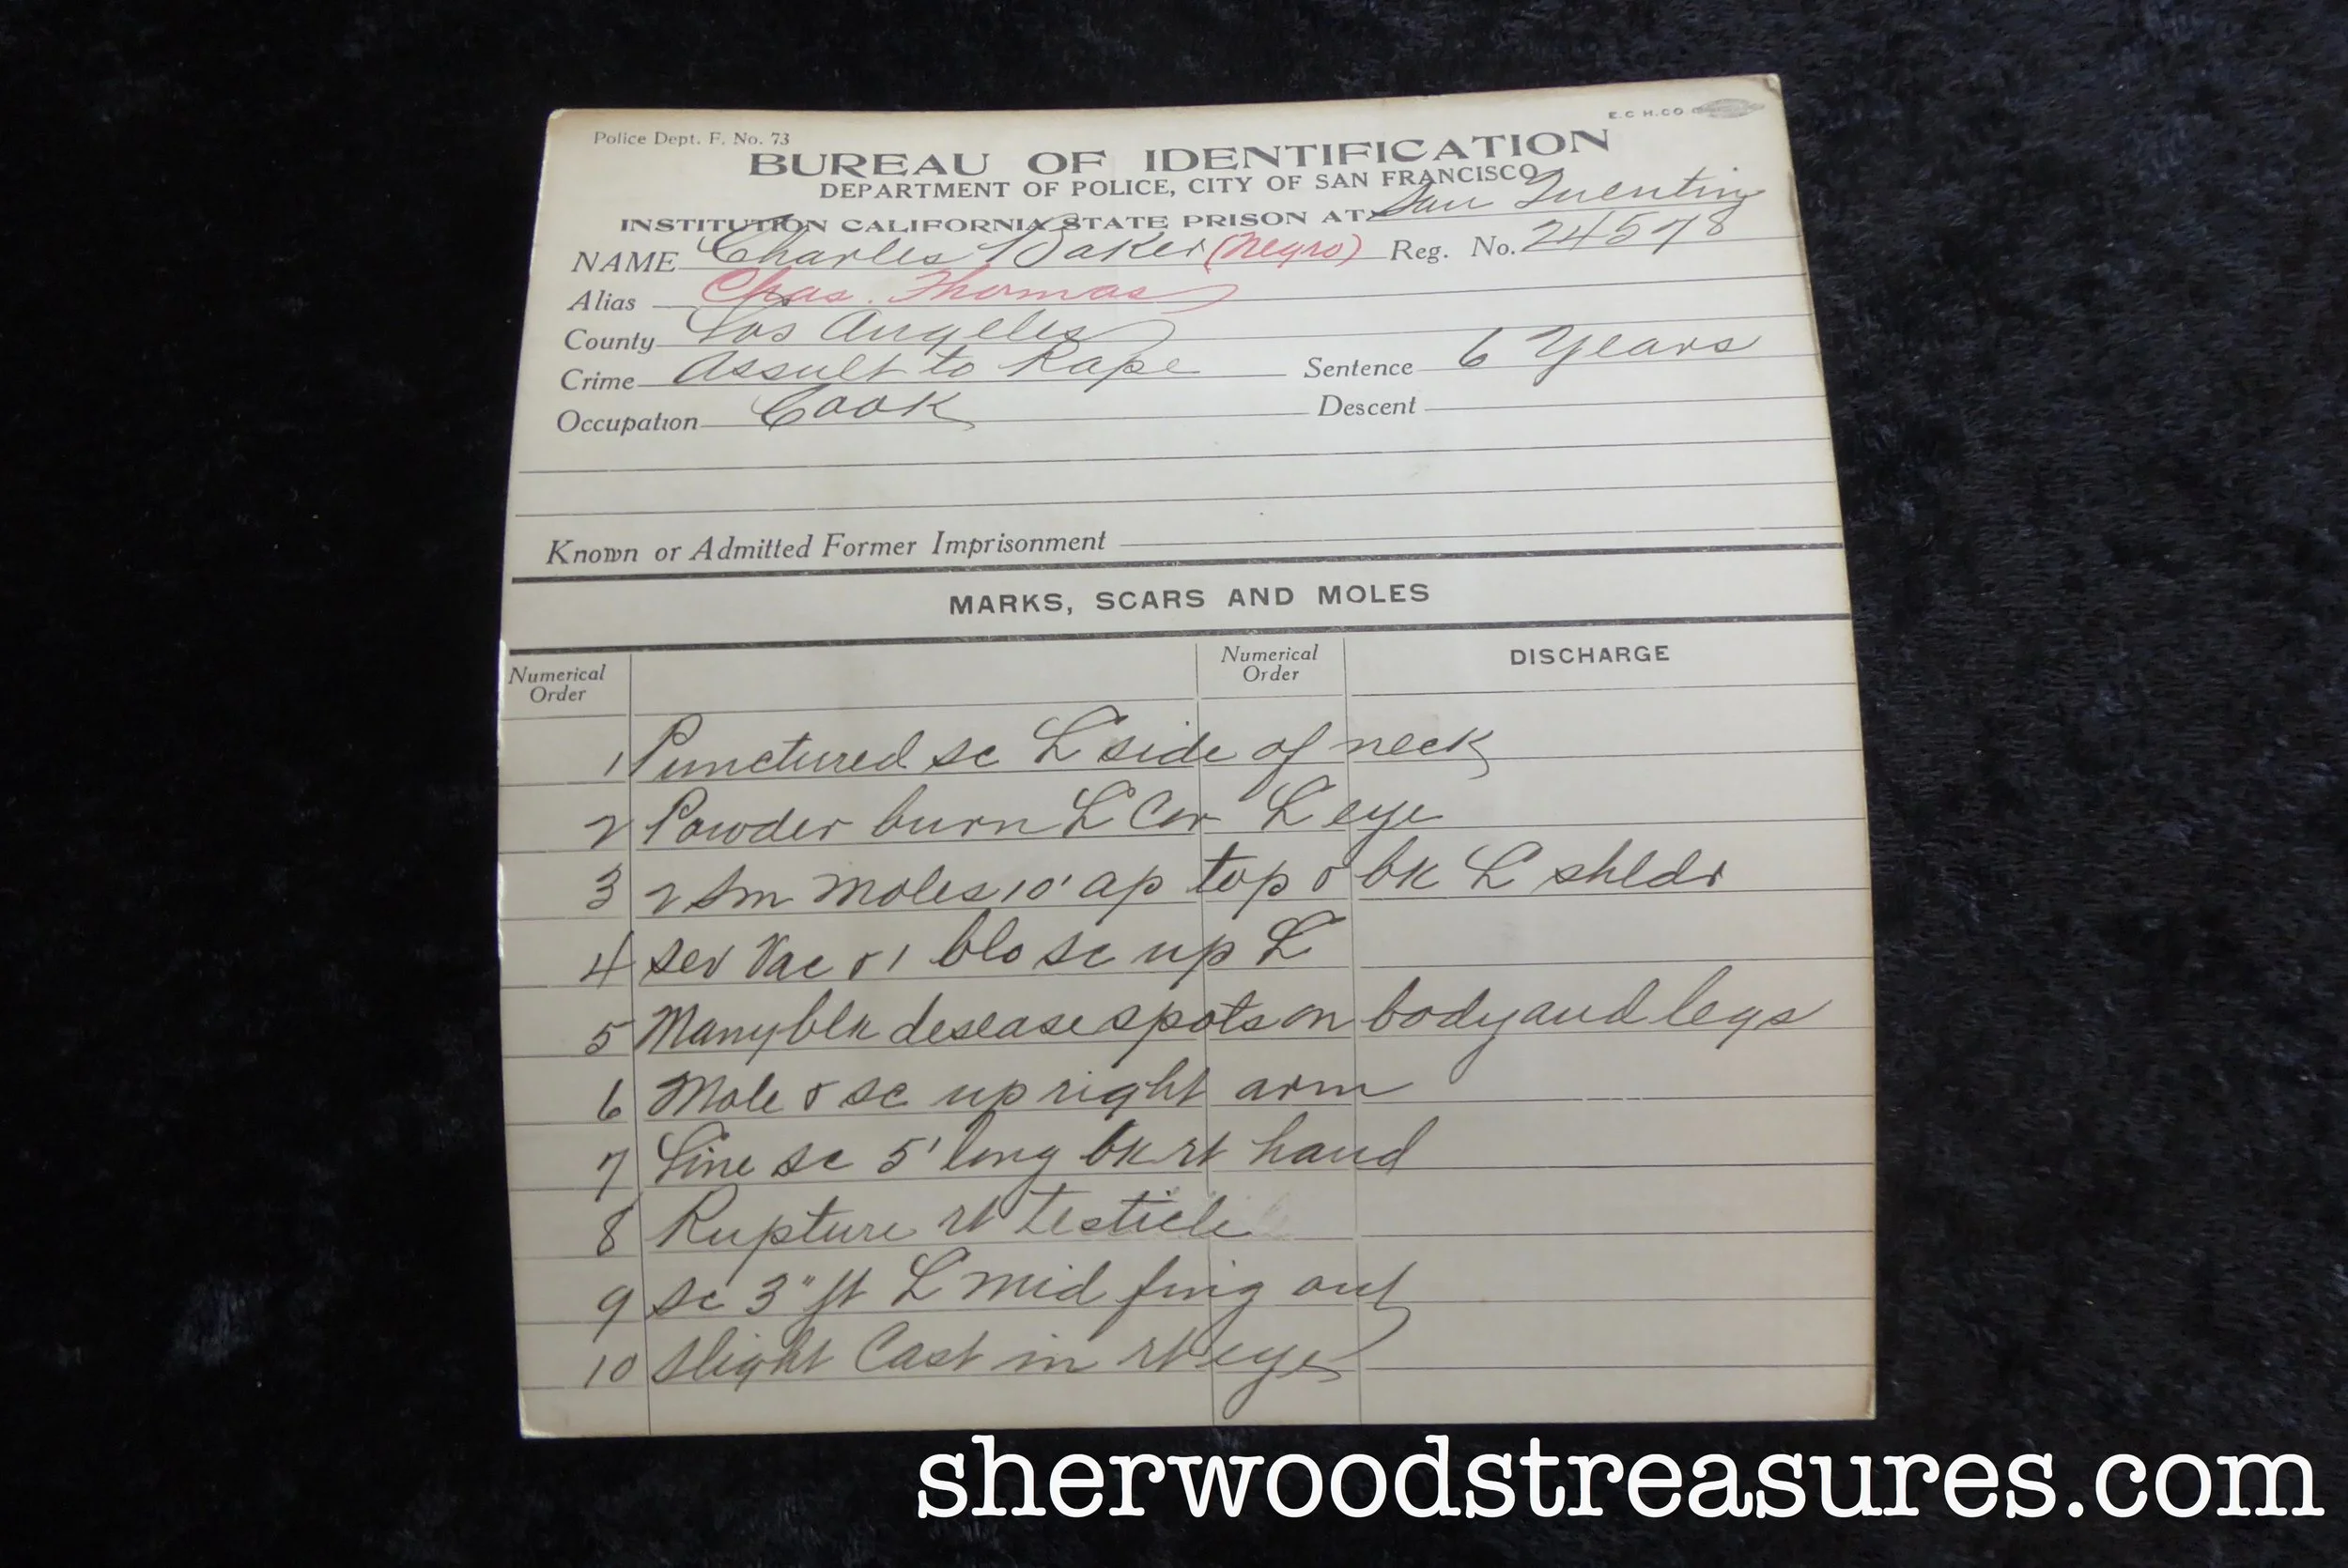 E.C.H.CO
Police Dept. F. No. 73
BUREAU OF IDENTIFICATION
DEPARTMENT OF POLICE, CITY OF SAN FRANCISCO
INSTITUTION CALIFORNIA STATE PRISON AT San Quentin
NAME Charles Baker (Negro) Reg. No. 24578
Alias Chas. Thomas
County Los Angeles
Crime Assult to Rape Sentence 6 Years
Occupation Cook Descent
Known or Admitted Former Imprisonment
MARKS, SCARS AND MOLES
Numerical Order Numerical Order DISCHARGE
1 Punctured sc L side of neck
2 Powder burn L Cor L eye
3 2 sm moles 10' ap top & bk L shldr
4 sev Vac & 1 blo sc up L
5 Many blk desease spots on body and legs
6 Mole & sc up right arm
7 Line sc 5' long bk rt hand
8 Rupture rt Testicle
9 sc 3" ft L mid fing out
10 slight Cast in rt eye
sherwoodstreasures.com